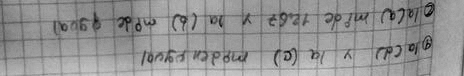 la (d) y la (c) miden igual
la (a) mide 12.67 y la (b) mide igual